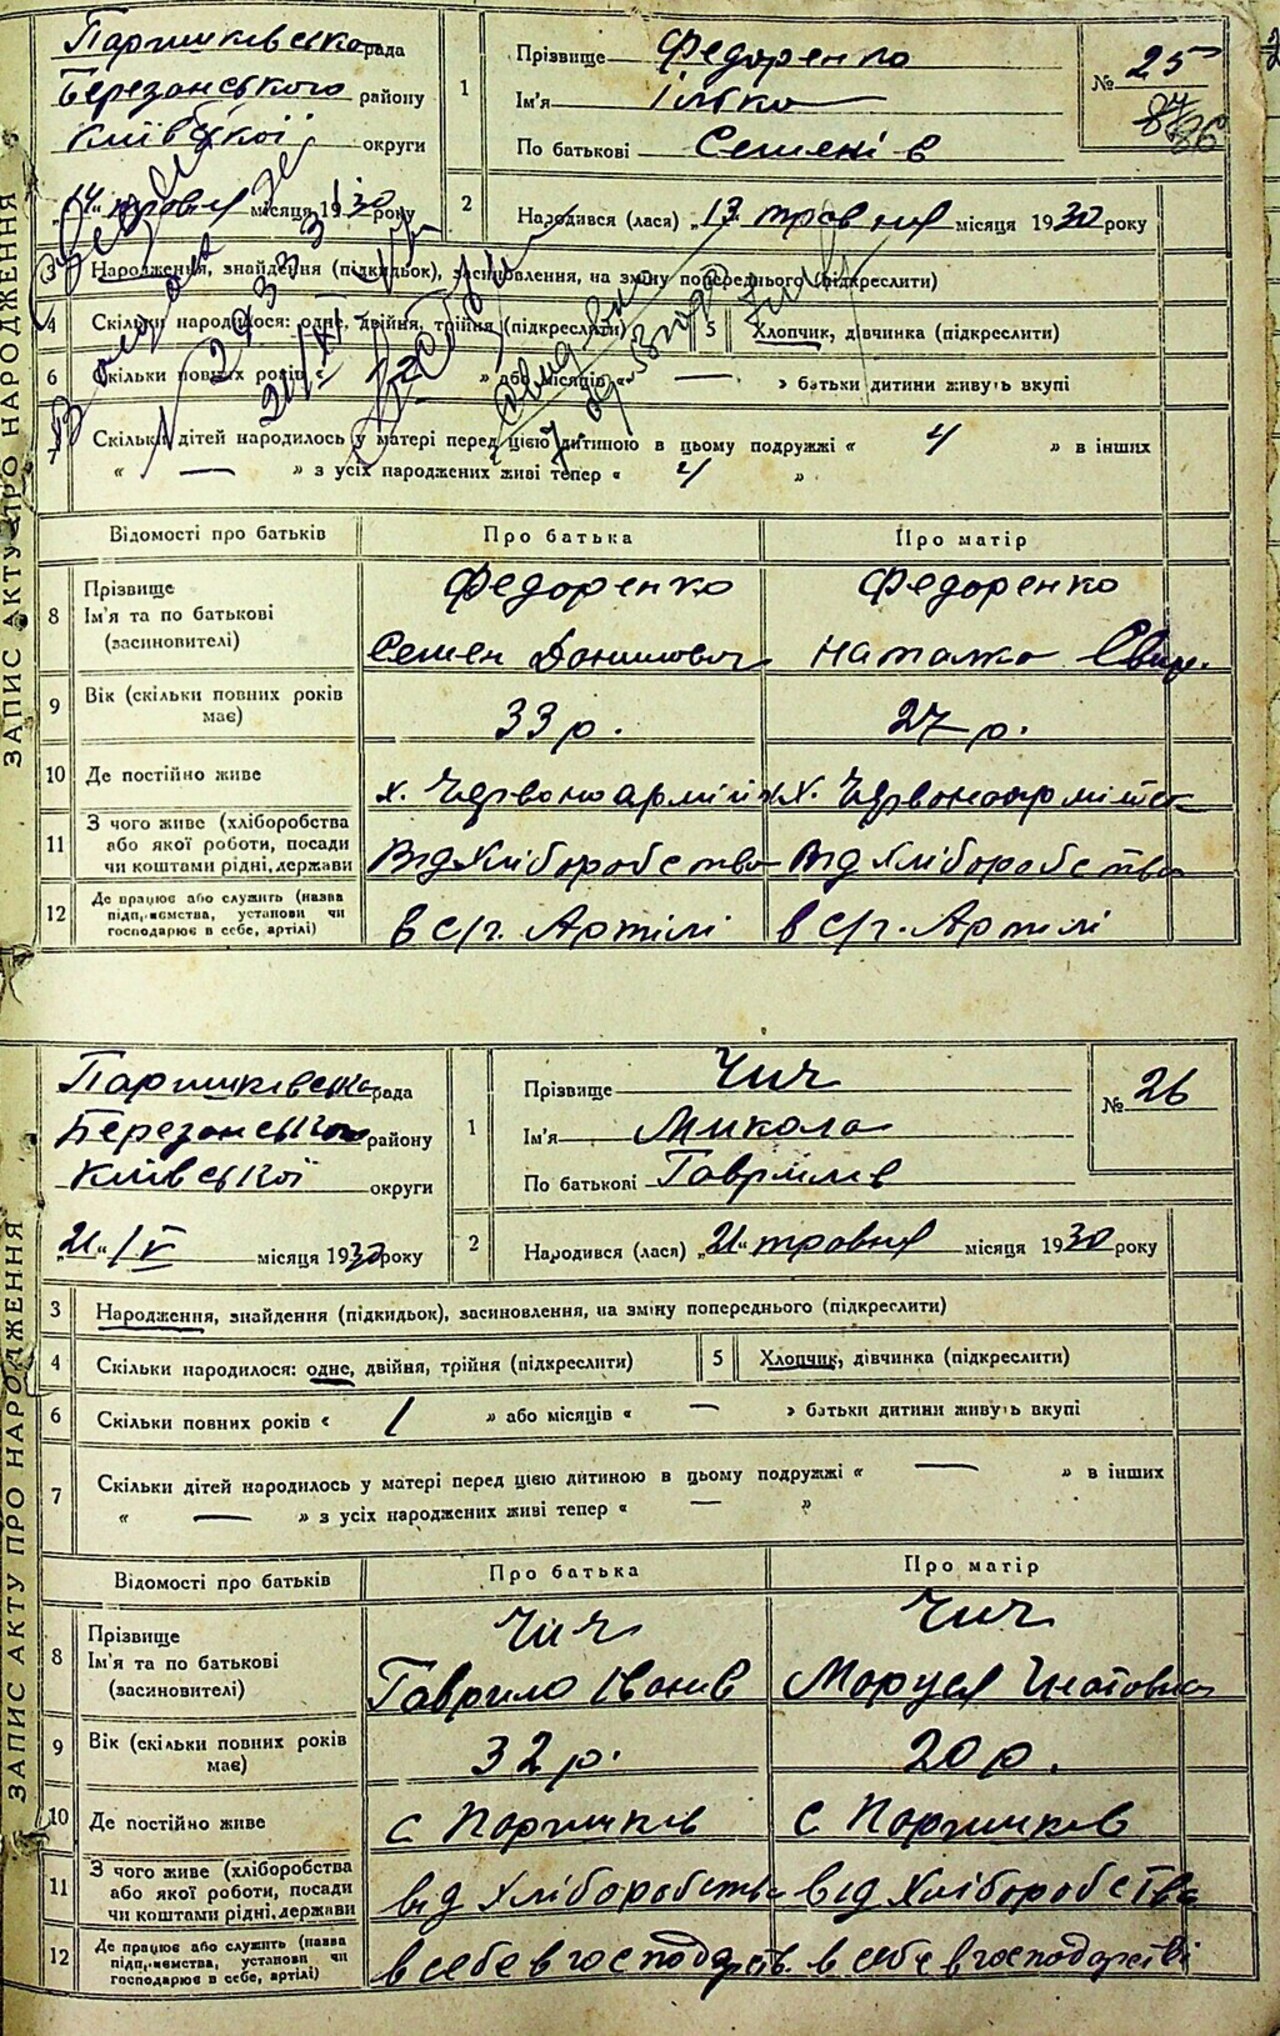 ЗАПИС АКТУ ПРО НАРОДЖЕННЯ
Паришківська рада
Березанського району
Київської округи
„14“ травня місяця 1930 року
1 Прізвище Федоренко
Ім'я Ілько
По батькові Семенів
№ 25
2 Народився (лася) „13“ травня місяця 1930 року
3 Народження, знайдення (підкидьок), засиновлення, на зміну попереднього (підкреслити)
4 Скільки народилося: одне, двійня, трійня (підкреслити) 5 Хлопчик, дівчинка (підкреслити)
6 Скільки повних років « 12 » або місяців « — » батьки дитини живуть вкупі
7 Скільки дітей народилось у матері перед цією дитиною в цьому подружжі « 4 » в інших
« — » з усіх народжених живі тепер « 4 »
Відомості про батьків Про батька Про матір
8 Прізвище Федоренко Федоренко
Ім'я та по батькові
(засиновителі) Семен Данилович Наталка
9 Вік (скільки повних років має) 33 р. 27 р.
10 Де постійно живе х. Червоноармій х. Червоноармійськ
11 З чого живе (хліборобства
або якої роботи, посади
чи коштами рідні, держави Від Хліборобства Від Хліборобства
12 Де працює або служить (назва
підприємства, установи чи
господарює в себе, артілі) в с/г. Артілі в с/г. Артілі
ЗАПИС АКТУ ПРО НАРОДЖЕННЯ
Паришківська рада
Березанського району
Київської округи
„21“ /V місяця 1930 року
1 Прізвище Чич
Ім'я Микола
По батькові Гаврилів
№ 26
2 Народився (лася) „21“ травня місяця 1930 року
3 Народження, знайдення (підкидьок), засиновлення, на зміну попереднього (підкреслити)
4 Скільки народилося: одне, двійня, трійня (підкреслити) 5 Хлопчик, дівчинка (підкреслити)
6 Скільки повних років « 1 » або місяців « — » батьки дитини живуть вкупі
7 Скільки дітей народилось у матері перед цією дитиною в цьому подружжі « — » в інших
« — » з усіх народжених живі тепер « — »
Відомості про батьків Про батька Про матір
8 Прізвище Чич Чич
Ім'я та по батькові
(засиновителі) Гаврило Іванів Маруся Гнатовна
9 Вік (скільки повних років має) 32 р. 20 р.
10 Де постійно живе с Паришків с Паришків
11 З чого живе (хліборобства
або якої роботи, посади
чи коштами рідні, держави від Хліборобства від Хліборобства
12 Де працює або служить (назва
підприємства, установи чи
господарює в себе, артілі) в себе в господарств. в себе в господарстві